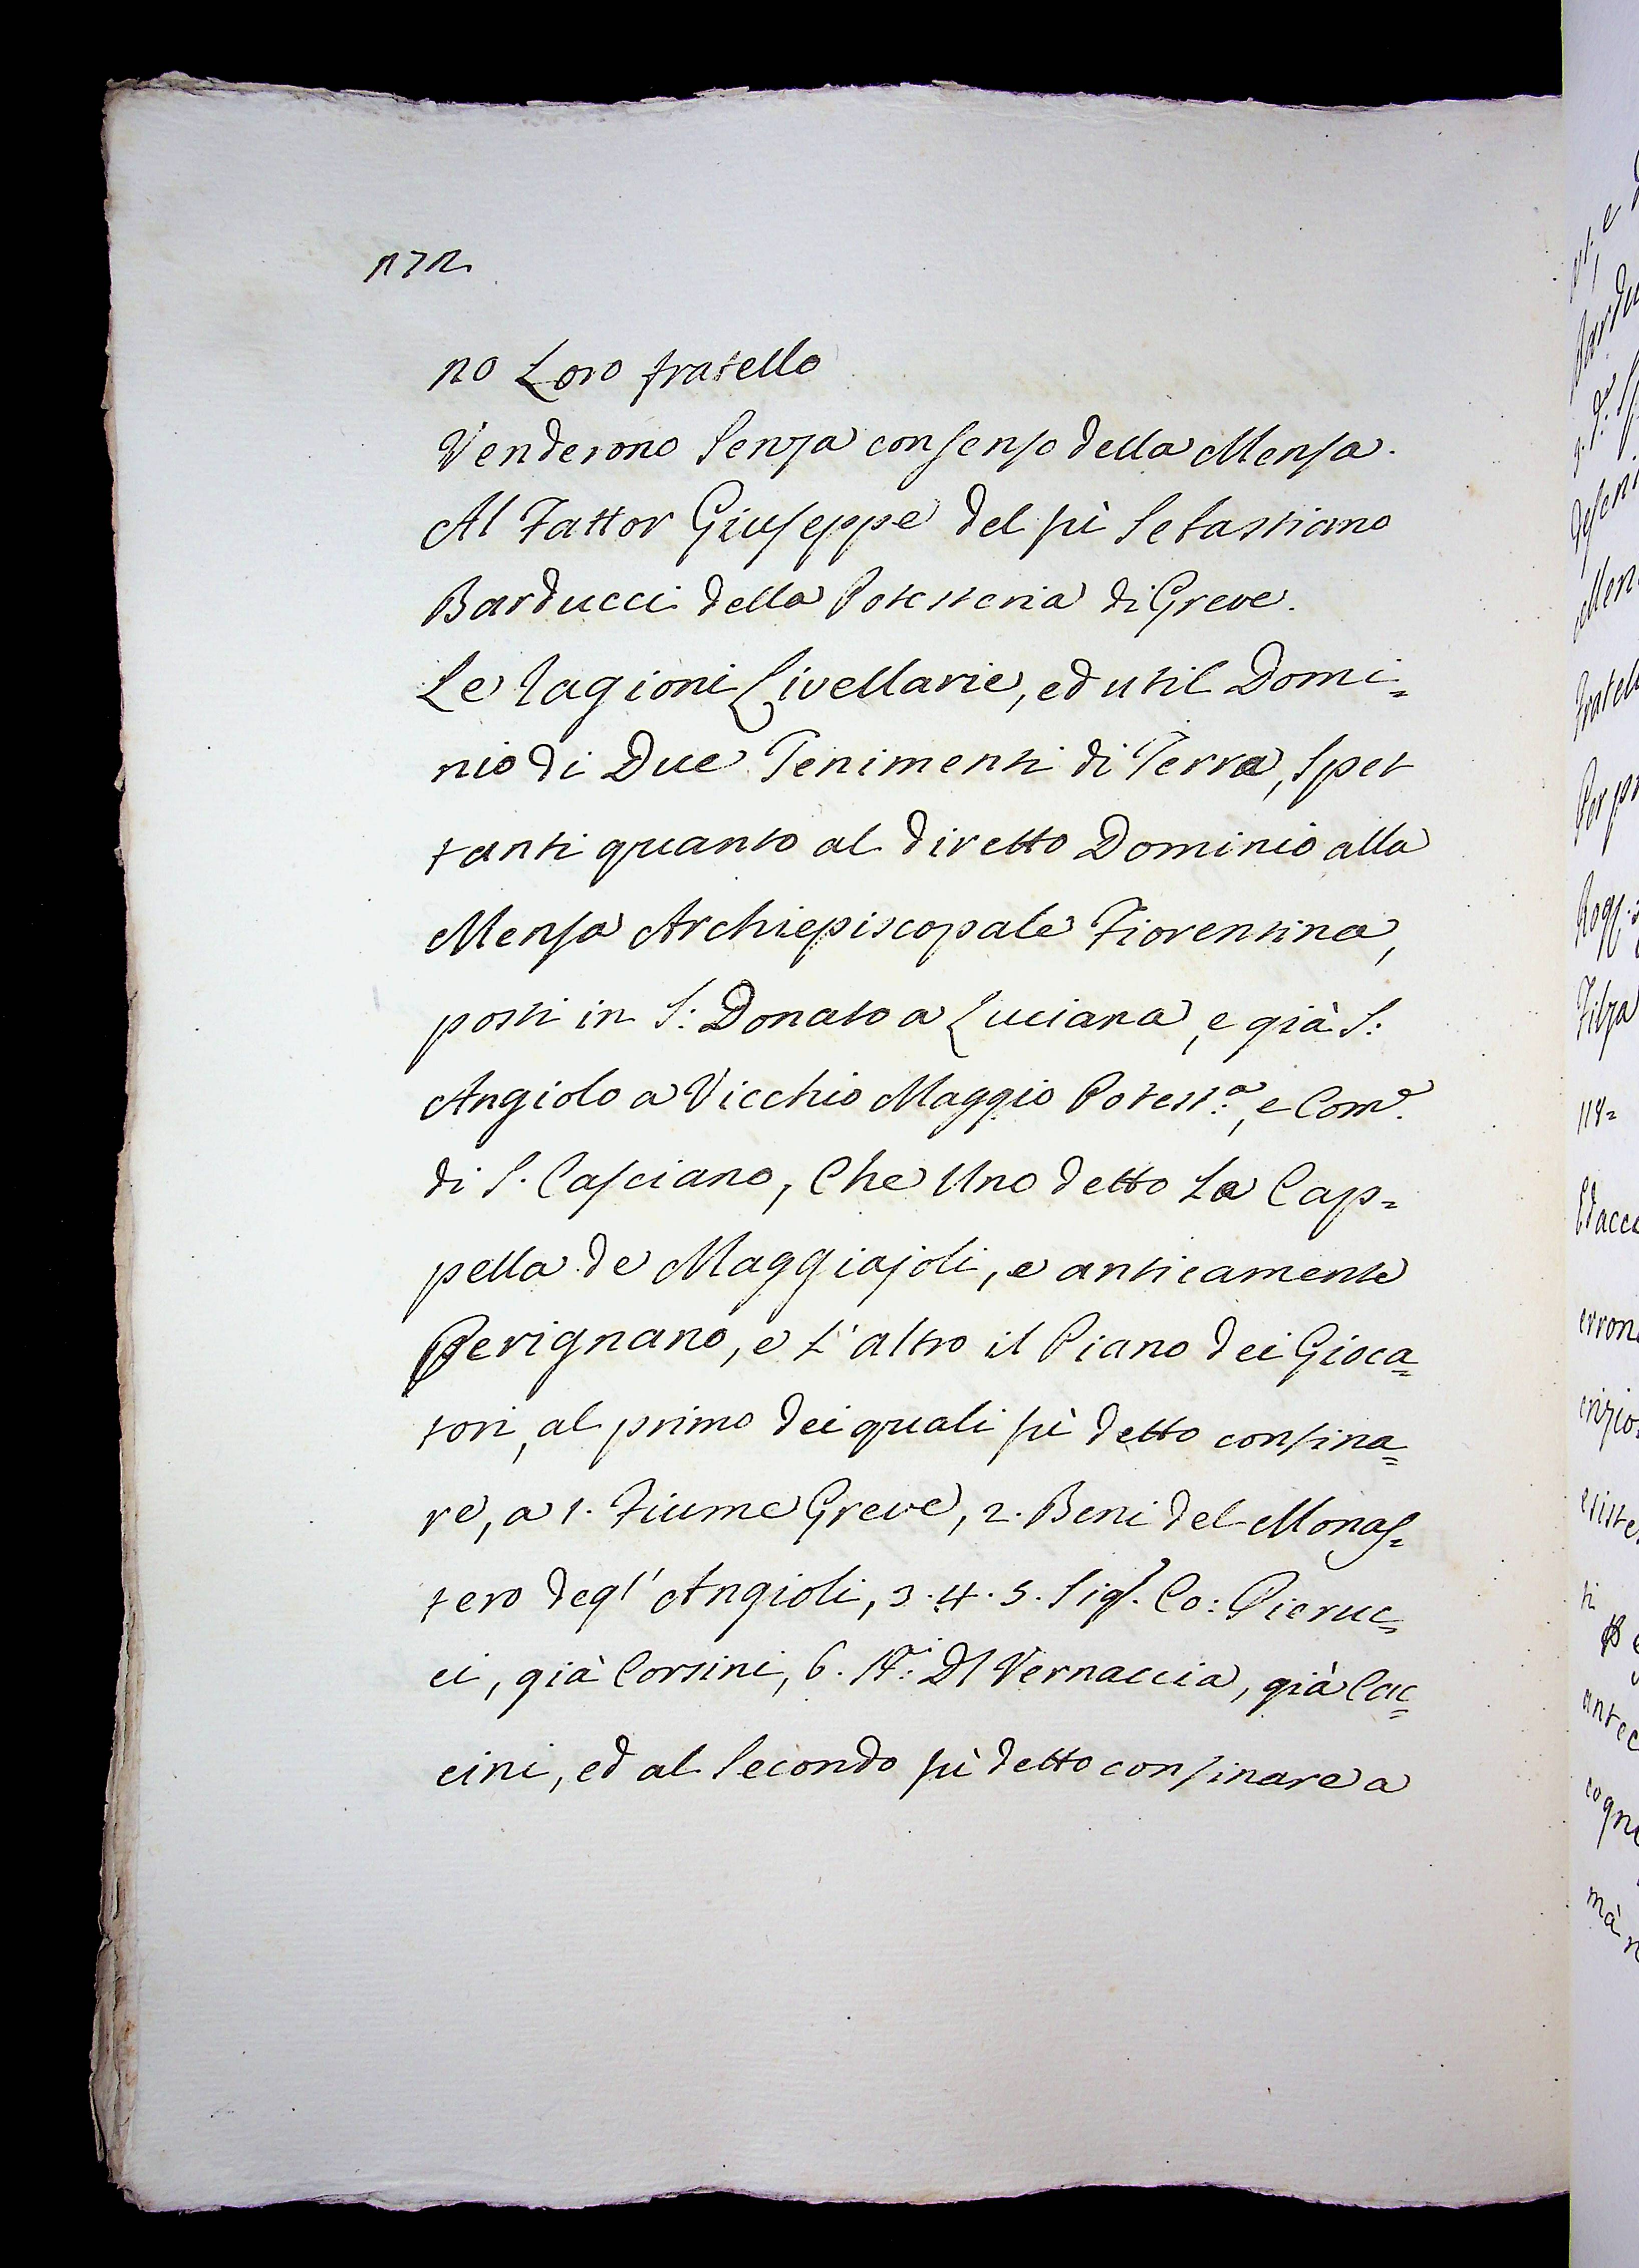 172
no Loro fratello
Venderono Senza consenso della Mensa.
Al Fattor Giuseppe del fù Sebastiano
Barducci della Potesteria di Greve.
Le ragioni Livellarie, ed util Domi=
nio di Due Tenimenti di Terra, Spet
tanti quanto al diretto Dominio alla
Mensa Archiepiscopale Fiorentina,
posti in S: Donato a Luciana, e già S:
Angiolo a Vicchio Maggio Potest:ª, e Com:ª
di S. Casciano, Che Uno detto La Cap=
pella de Maggiajoli, e anticamente
Perignano, e L'altro il Piano dei Gioca=
tori, al primo dei quali fù detto confina=
re, a 1. Fiume Greve, 2. Beni del Monas=
tero degl' Angioli, 3. 4. 5. Sig.r Co: Pieruc=
ci, già Corsini, 6. Del Vernaccia, già Cac=
cini, ed al Secondo fù detto confinare a